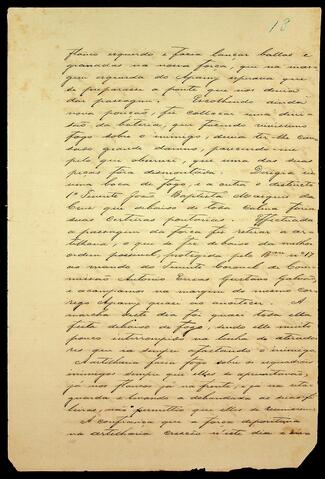 18
flanco esquerdo e fazia lançar ballas e
granadas na nossa força, que na mar-
gem esquerda do Apamy esperava que
se preparasse a ponte que nos devia
dar passagem. Escolhendo ainda
nova posição, fiz collocar uma divi-
são da bateria, que fazendo
fogo sobre o inimigo, devia ter-lhe cau-
sado grande damno, parecendo-me
pelo que observei, que uma das suas
peças fôra desmontada. Dirigia eu
uma boca de fogo, e a outra o distincto
1º Tenente João Baptista Marques da
Cruz que debaixo de toda calma fazia
suas certeiras pontarias. Effectuada
a passagem da força fiz retirar a ar-
tilharia, o que se fez debaixo da melhor
ordem possivel, protegida pelo Bam nº 17
ao mando do Tenente Coronel de Com-
missão Antonio Enéas Gustavo Galvão,
e acampamos na margem do mesmo cor-
rego Apamy quasi ao anoitecer. A
marcha deste dia foi quasi toda ella
feita debaixo de fogo, sendo elle muito
pouco interrompido na linha de atirado-
res que ia sempre afastando o inimigo.
A artilharia fazia fogo sobre os esquadrões
inimigos sempre que elles se apresentavão,
já nos flancos, já na frente, e já na reta-
guarda e levando a debandada as suas fi-
leiras, não permittia que elles se reunissem.
A confiança que a força depositava
na artilharia cresceo n'este dia a